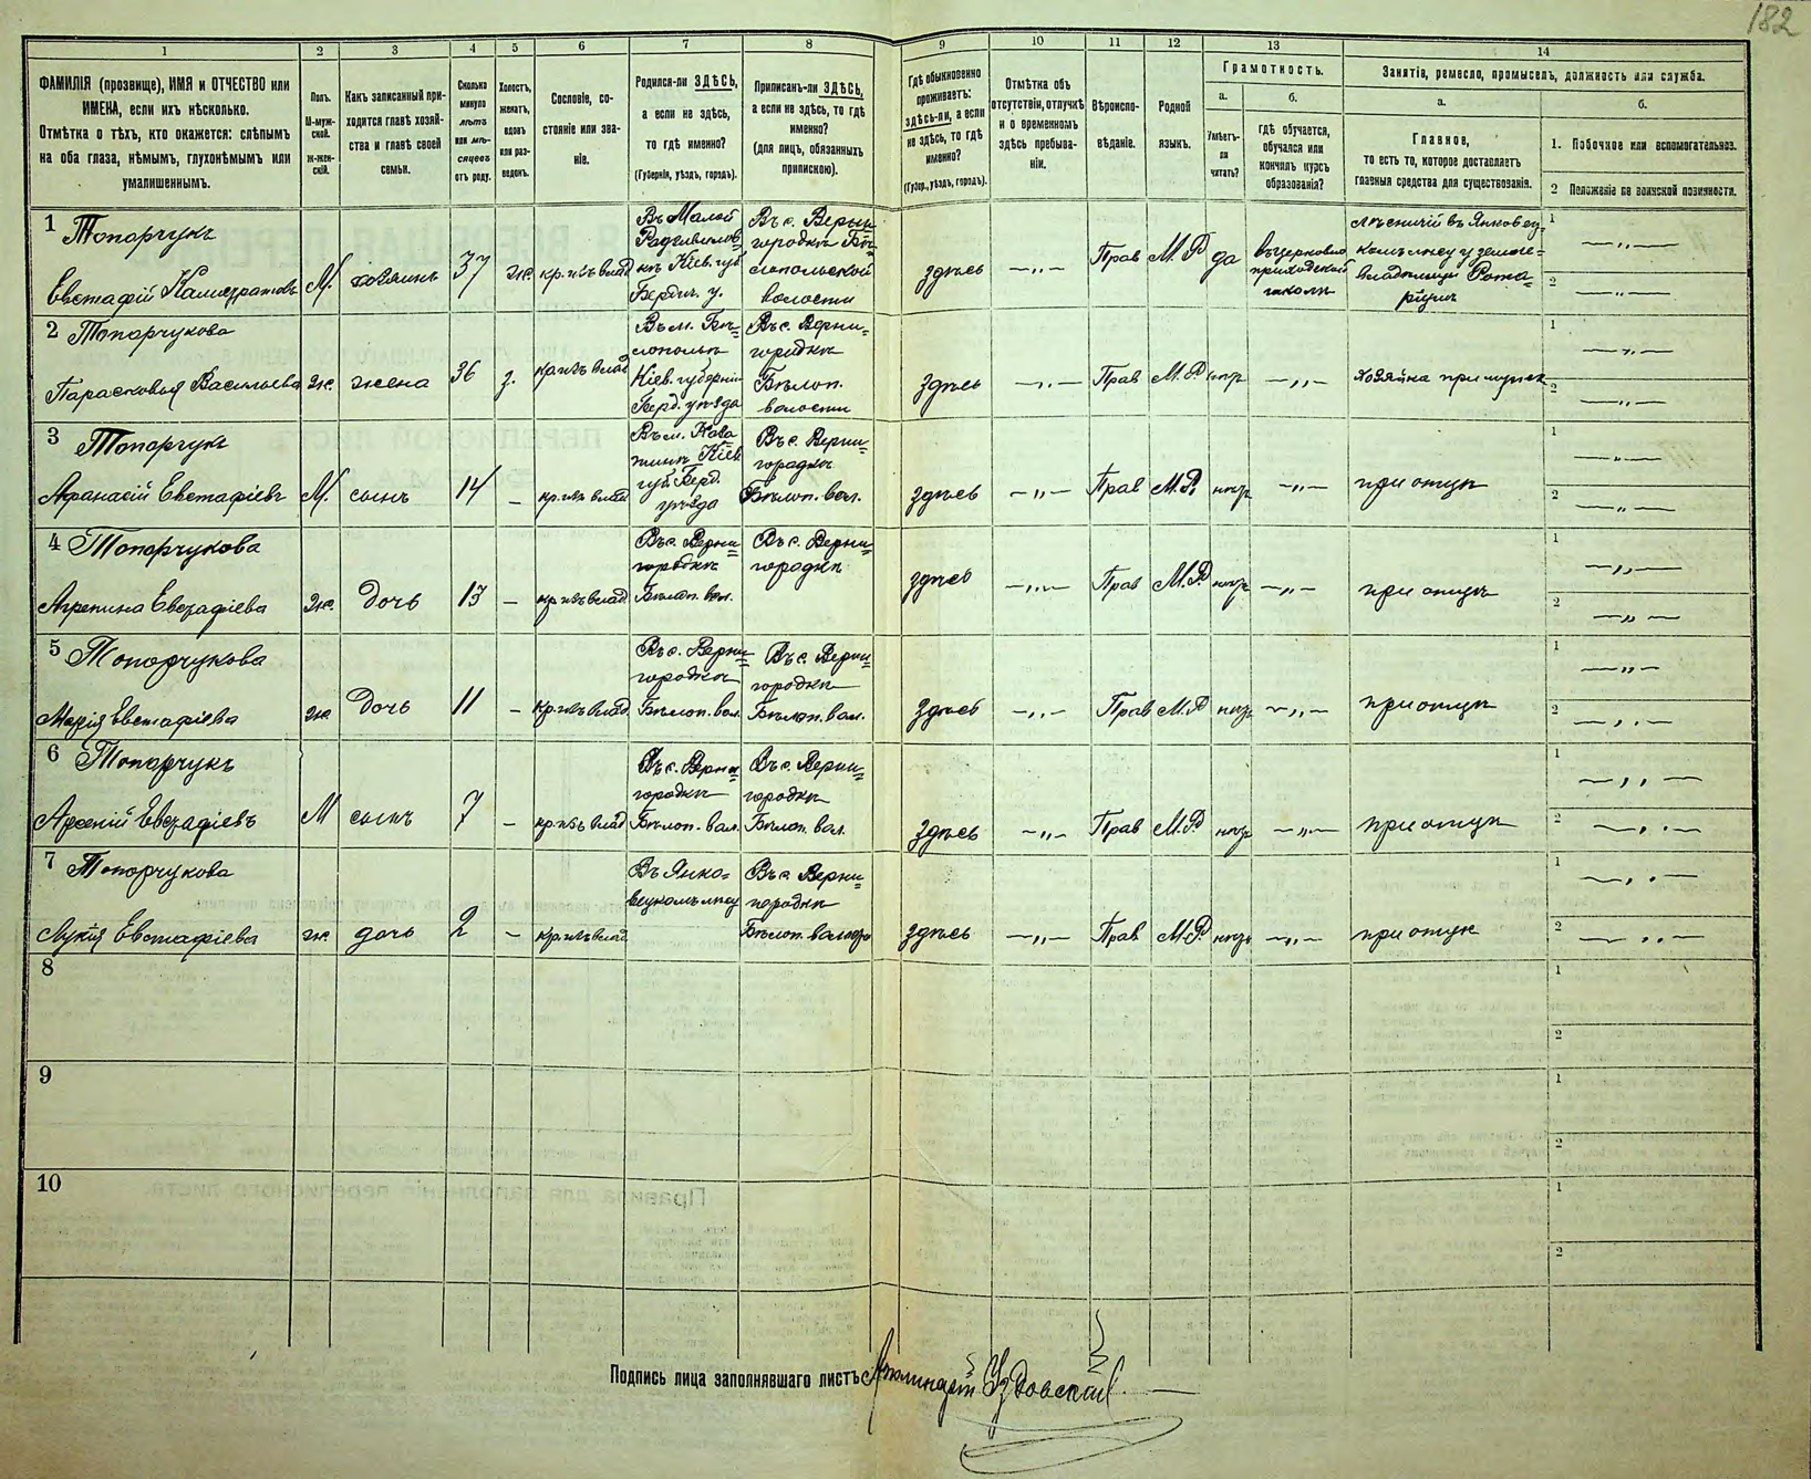 182
1 2 3 4 5 6 7 8 9 10 11 12 13 14
ФАМИЛІЯ (прозвище), ИМЯ и ОТЧЕСТВО или
ИМЕНА, если ихъ нѣсколько.
Отмѣтка о тѣхъ, кто окажется: слѣпымъ
на оба глаза, нѣмымъ, глухонѣмымъ или
умалишеннымъ.
Полъ.
М-муж-
ской.
Ж-жен-
скій.
Какъ записанный при-
ходится главѣ хозяй-
ства и главѣ своей
семьи.
Сколько
минуло
лѣтъ
или мѣ-
сяцевъ
отъ роду.
Холостъ,
женатъ,
вдовъ
или раз-
веденъ.
Сословіе, со-
стояніе или зва-
ніе.
Родился-ли ЗДѢСЬ,
а если не здѣсь,
то гдѣ именно?
(Губернія, уѣздъ, городъ).
Приписанъ-ли ЗДѢСЬ,
а если не здѣсь, то гдѣ
именно?
(для лицъ, обязанныхъ
припискою).
Гдѣ обыкновенно
проживаетъ:
здѣсь-ли, а если
не здѣсь, то гдѣ
именно?
(Губер., уѣздъ, городъ).
Отмѣтка объ
отсутствіи, отлучкѣ
и о временномъ
здѣсь пребыва-
ніи.
Вѣроиспо-
вѣданіе.
Родной
языкъ.
Грамотность.
а.
Умѣетъ-
ли
читать?
б.
Гдѣ обучается,
обучался или
кончилъ курсъ
образованія?
Занятіе, ремесло, промыселъ, должность или служба.
а.
Главное,
то есть то, которое доставляетъ
главныя средства для существованія.
б.
1. Побочное или вспомогательное.
2 Положеніе по воинской повинности.
1 Топорчукъ
Евстафій
М. хозяинъ 37 ж.
Въ Малой
Кіев. губ
Бердич. у.
Въ с. Верни-
городкѣ Бѣ-
лопольской
волости
здѣсь — „ — Прав М. Р да
въ церковно
приходской
школѣ
лѣсничій въ Янковец-
комъ лѣсу у земле-
1 — „ —
2 — „ —
2 Топорчукова
Парасковья Васильева
ж. жена 36 з.
Въ м. Бѣ-
лопольѣ
Кіев. губерніи
Берд. уѣзда
Въ с. Верни-
городкѣ
Бѣлоп.
волости
здѣсь — „ — Прав М. Р. — „ —
хозяйка при мужѣ
1 — „ —
2 — „ —
3 Топорчукъ
Афанасій Евстафіевъ
М. сынъ 14 —
Въ м.
Кіев
губ. Берд.
уѣзда
Въ с. Верни-
городкѣ
Бѣлоп. вол.
здѣсь — „ — Прав М. Р. — „ — при отцѣ
1 — „ —
2 — „ —
4 Топорчукова
Агрепина Евстафіева
ж. дочь 13 —
Въ с. Верни-
городкѣ
Бѣлоп. вол.
Въ с. Верни-
городкѣ
здѣсь — „ — Прав М. Р. — „ — при отцѣ
1 — „ —
2 — „ —
5 Топорчукова
Марія Евстафіева
ж дочь 11 —
Въ с. Верни-
городкѣ
Бѣлоп. вол.
Въ с. Верни-
городкѣ
Бѣлоп. вол.
здѣсь — „ — Прав М. Р — „ — при отцѣ
1 — „ —
2 — „ —
6 Топорчукъ
Арсеній Евстафіевъ
М сынъ 7 —
Въ с. Верни-
городкѣ
Бѣлоп. вол.
Въ с. Верни-
городкѣ
Бѣлоп. вол.
здѣсь — „ — Прав М. Р. — „ — при отцѣ
1 — „ —
2 — „ —
7 Топорчукова
Лукія Евстафіева
ж. дочь 2 —
Въ Янко-
вецкомъ лѣсу
Въ с. Верни-
городкѣ
Бѣлоп.
здѣсь — „ — Прав М. Р. — „ — при отцѣ
1 — „ —
2 — „ —
8
1
2
9
1
2
10
1
2
Подпись лица заполнявшаго листъ